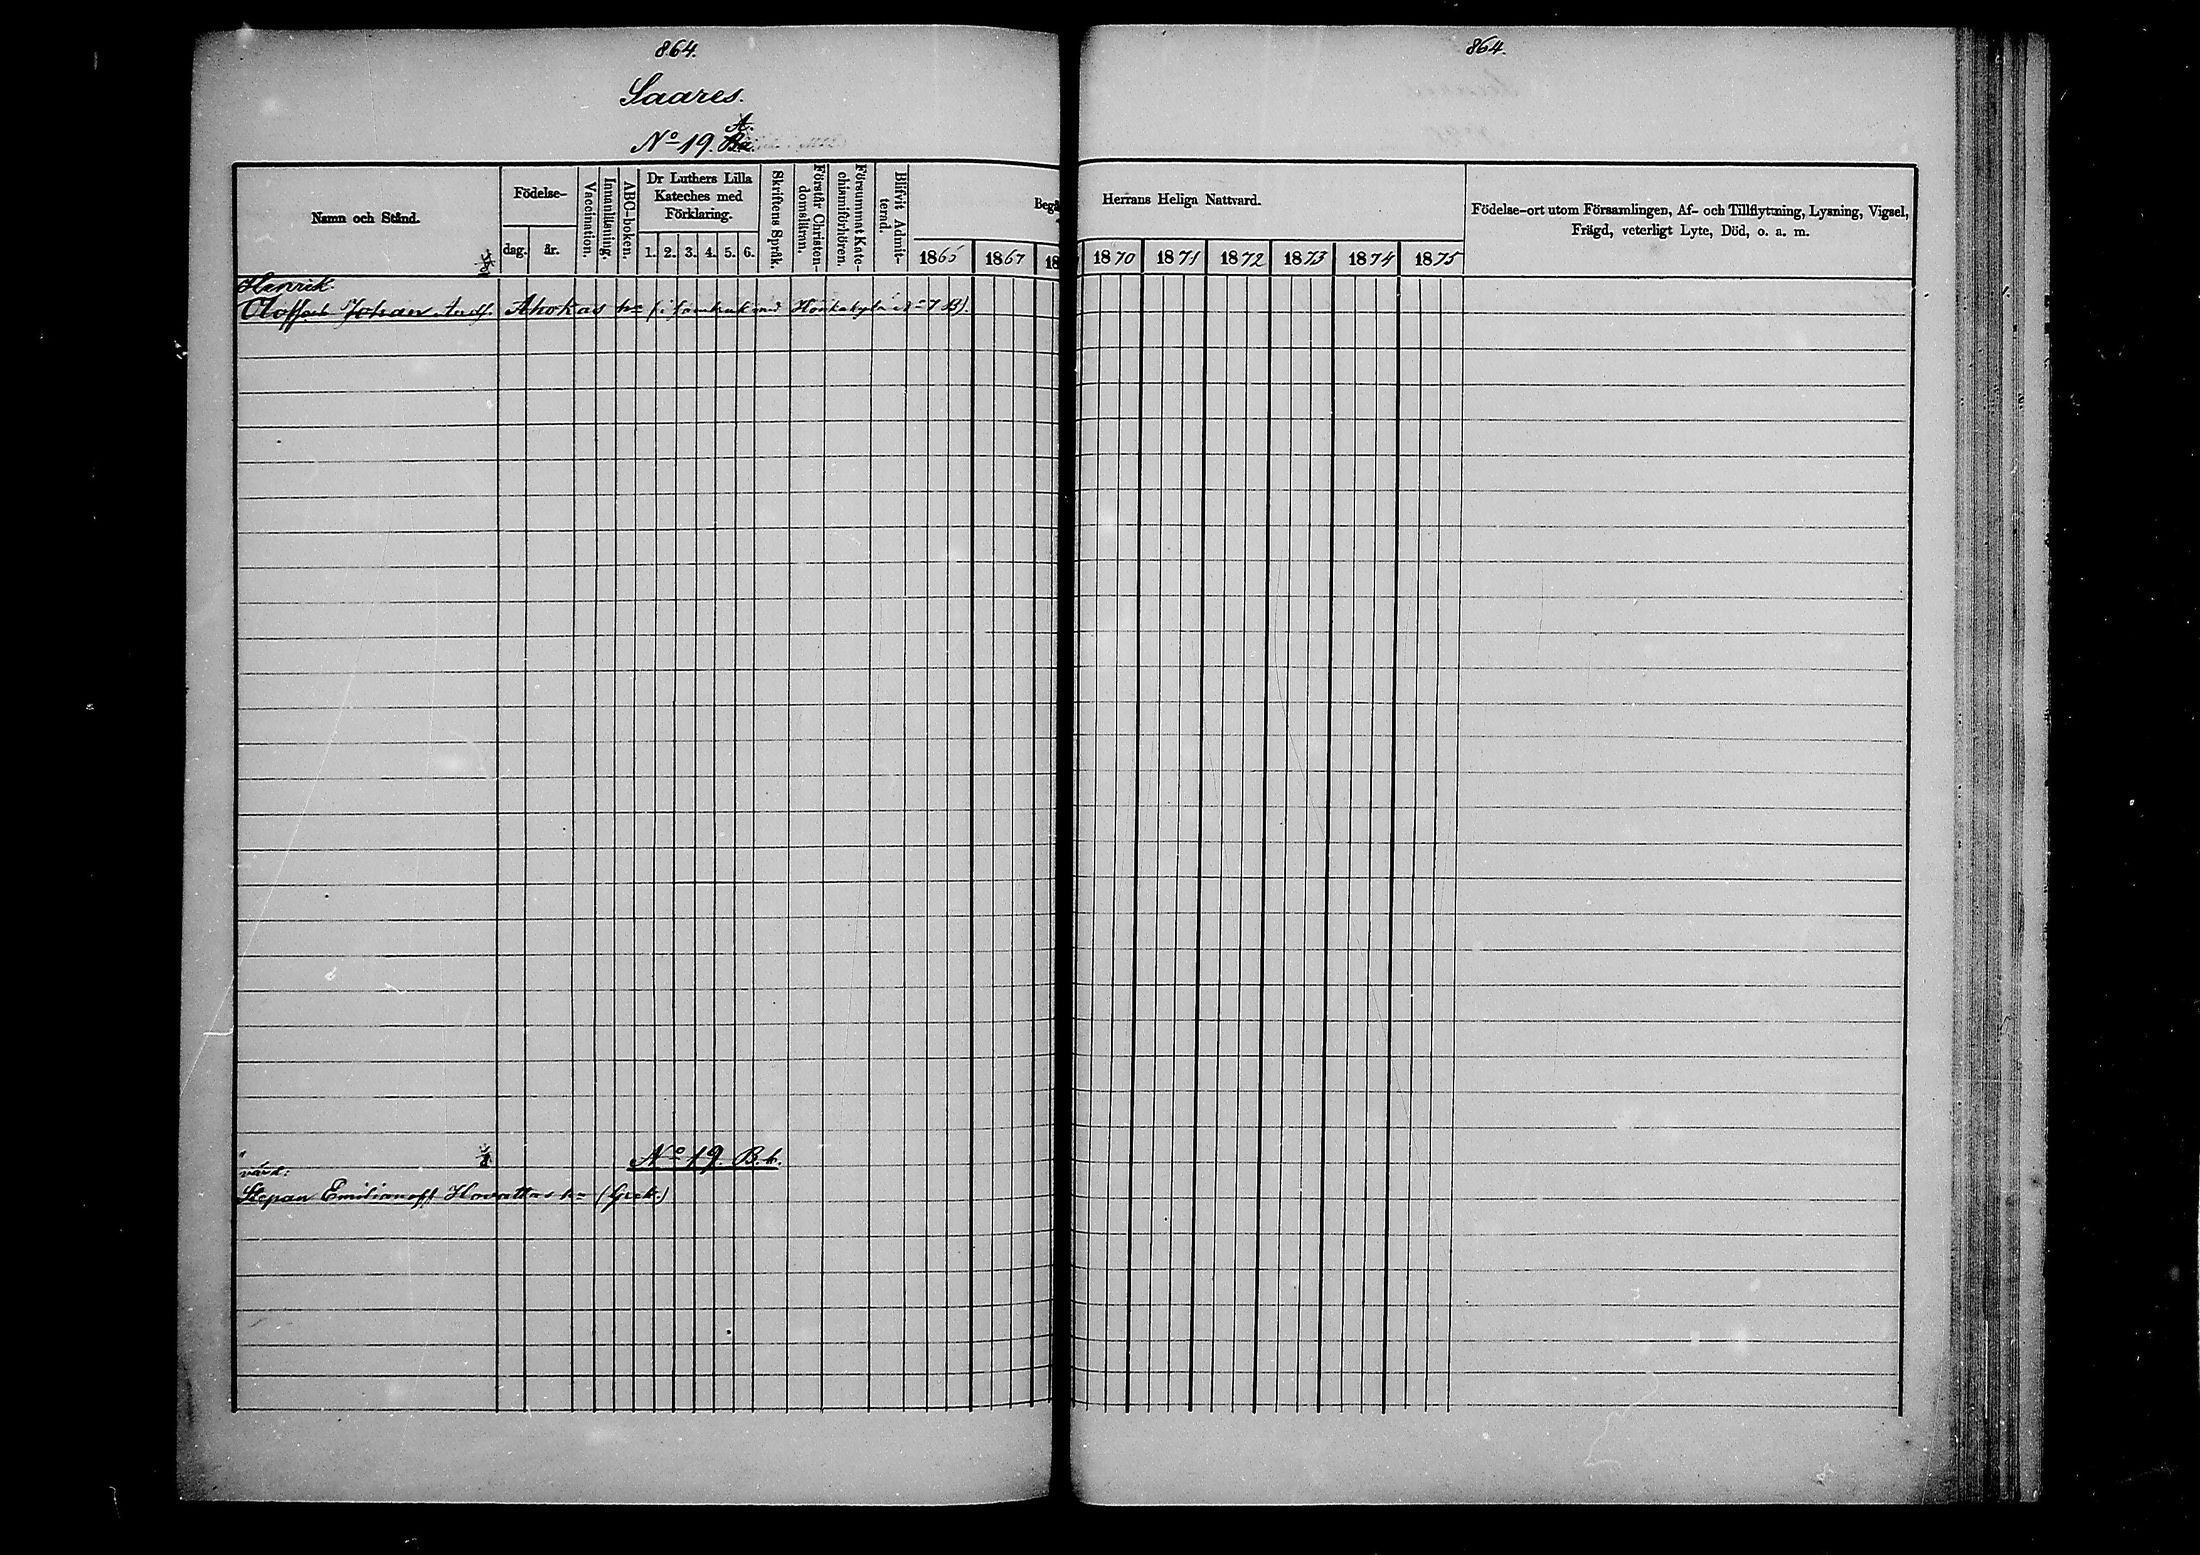 864.
Saares.
A.
No 19. Ba.
Namn och Stånd.
Födelse-
dag. år.
Vaccination.
Innanläsning.
ABC-boken.
Dr Luthers Lilla
Kateches med
Förklaring.
1. 2. 3. 4. 5. 6.
Skriftens Språk.
Förstår Christen-
domsläran.
Försummat Kate-
chismiförhören.
Blifvit Admit-
terad.
Begå
1866 1867 18
Henrik
Johan Ahokas hn (i sambruk med 7 B).
No 19. B.b.
värd:
Stepan Emilianoff Hovattas hn (Grek.)
864.
Herrans Heliga Nattvard.
1870 1871 1872 1873 1874 1875
Födelse-ort utom Församlingen, Af- och Tillflyttning, Lysning, Vigsel,
Frägd, veterligt Lyte, Död, o. a. m.